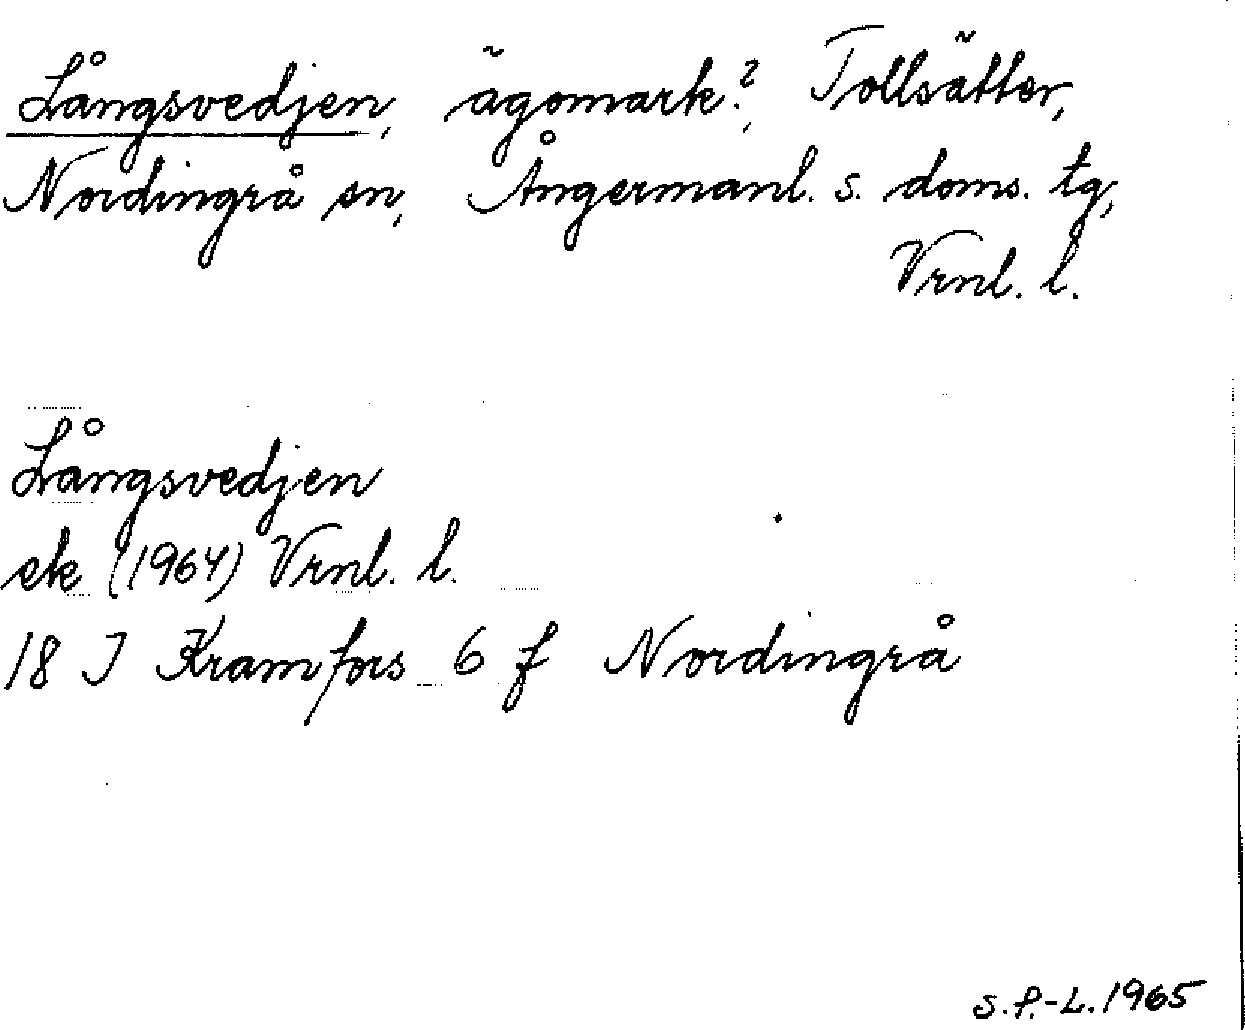 Långsvedjen, ägomark?, Tollsätter,
Nordingrå sn, Ångermanl. s. doms. tg,
Vrnl. l.
Långsvedjen
ek (1964) Vrnl. l.
18 I Kramfors 6 f Nordingrå
S.P.-L. 1965